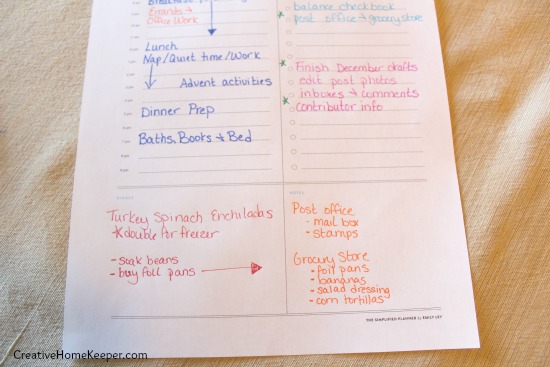 Errands →
Office Work
Lunch
Nap/Quiet time/Work
Advent activities
Dinner Prep
Baths, Books + Bed
balance checkbook
post office → grocery store
Finish December drafts
edit post photos
inboxes → comments
contributor info
Turkey Spinach Enchiladas
*double for freezer
- soak beans
- buy foil pans
NOTES
Post office
- mail box
- stamps
Grocery Store
- foil pans
- bananas
- salad dressing
- corn tortillas
THE SIMPLIFIED PLANNER by EMILY LEY
CreativeHomeKeeper.com